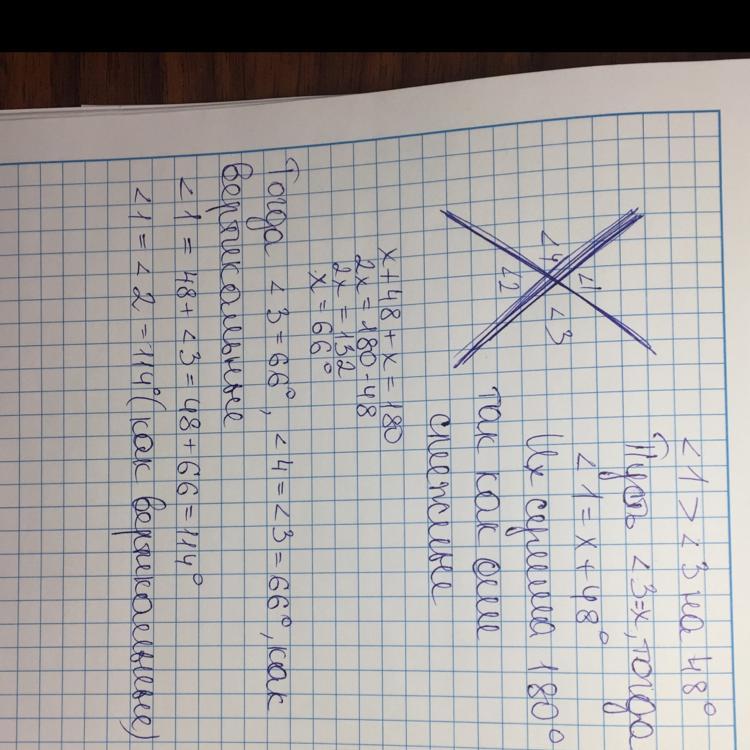 ∠1 > ∠3 на 48°
Пусть ∠3=x, тогда
∠1 = x + 48°
Их сумма 180°
так как они
смежные
∠1
∠3
∠4
∠2
x + 48 + x = 180
2x = 180 - 48
2x = 132
x = 66°
Тогда ∠3 = 66°, ∠4 = ∠3 = 66°, как
вертикальные
∠1 = 48 + ∠3 = 48 + 66 = 114°
∠1 = ∠2 = 114° (как вертикальные)